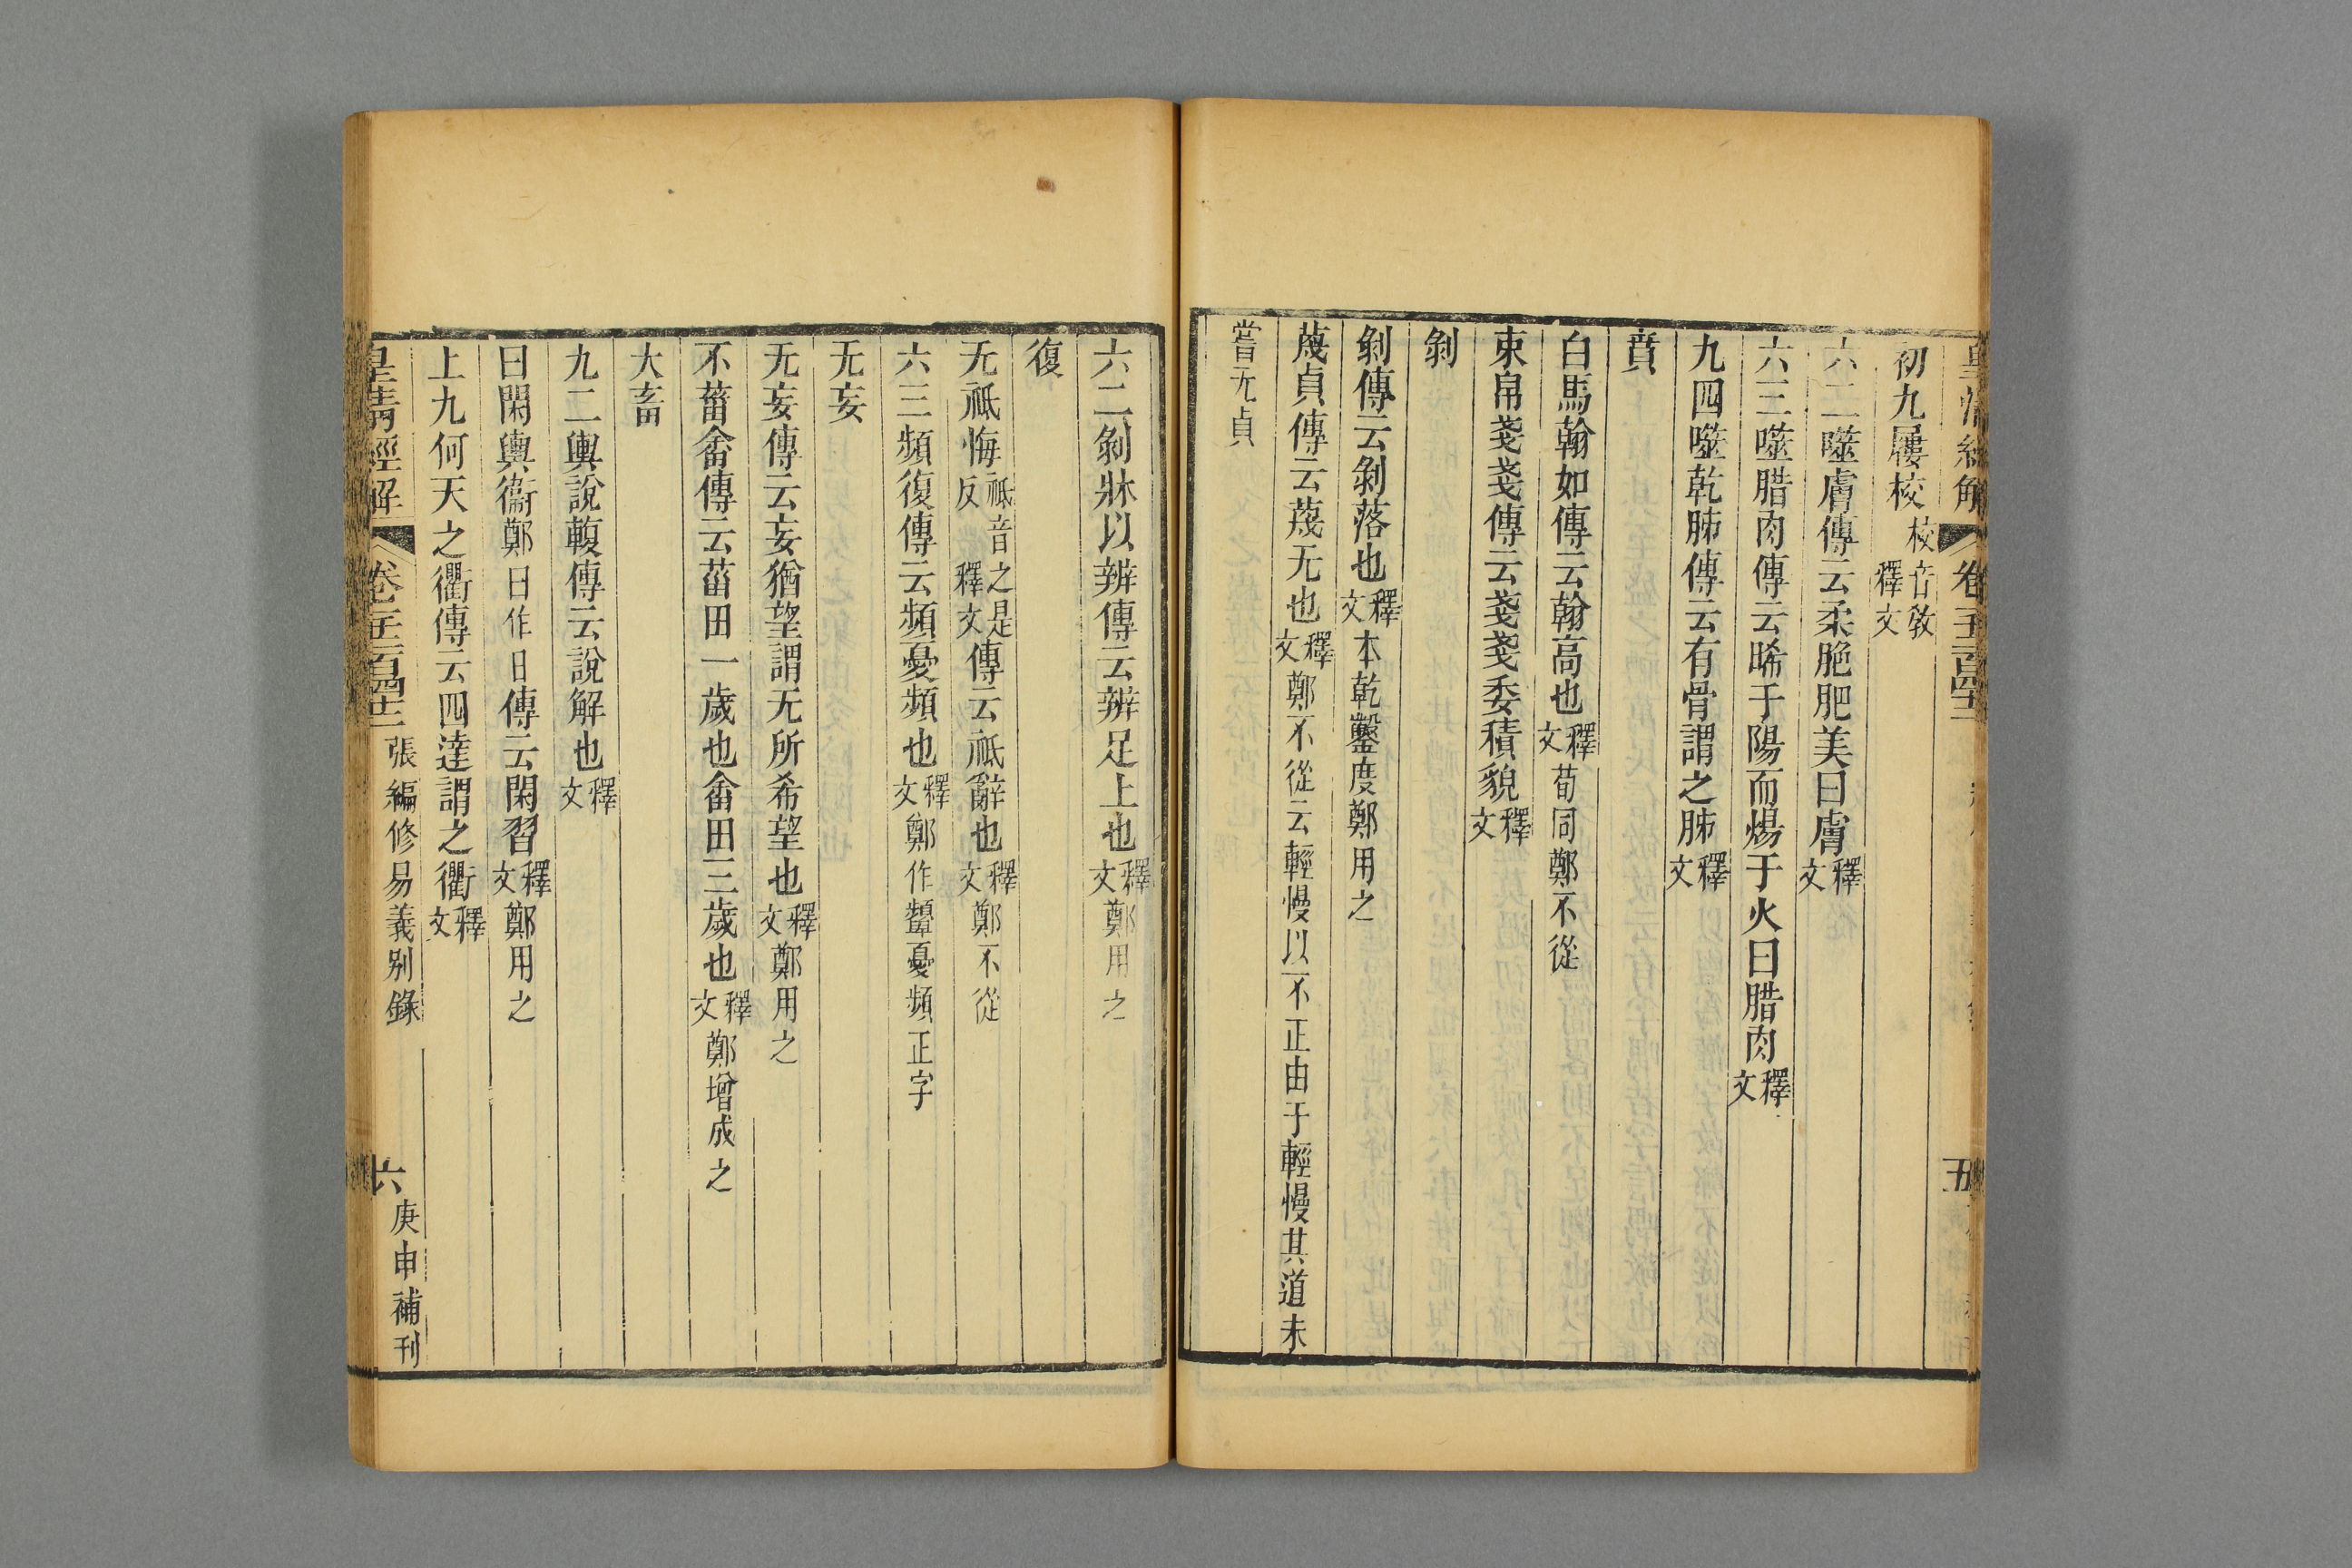 皇清經解 卷一千二百四十二 五
初九屨校校音教釋文
六二噬膚傳云柔脆肥美曰膚釋文
六三噬腊肉傳云晞于陽而煬于火曰腊肉釋文
九四噬乾胏傳云有骨謂之胏釋文
賁
白馬翰如傳云翰高也釋文荀同鄭不從
束帛戔戔傳云戔戔委積貌釋文
剝
剝傳云剝落也釋文本乾鑿度鄭用之
蔑貞傳云蔑无也釋文鄭不從云輕慢以不正由于輕慢其道未
嘗无貞
六二剝牀以辨傳云辨足上也釋文鄭用之
復
无祗悔祗音之是反釋文傳云祗辭也釋文鄭不從
六三頻復傳云頻憂頻也釋文鄭作顰憂頻正字
无妄
无妄傳云妄猶望謂无所希望也釋文鄭用之
不菑畬傳云菑田一歲也畬田三歲也釋文鄭增成之
大畜
九二輿說輹傳云說解也釋文
曰閑輿衞鄭曰作日傳云閑習釋文鄭用之
上九何天之衢傳云四達謂之衢釋文
皇清經解 卷一千二百四十二 張編修易義別錄 六 庚申補刊